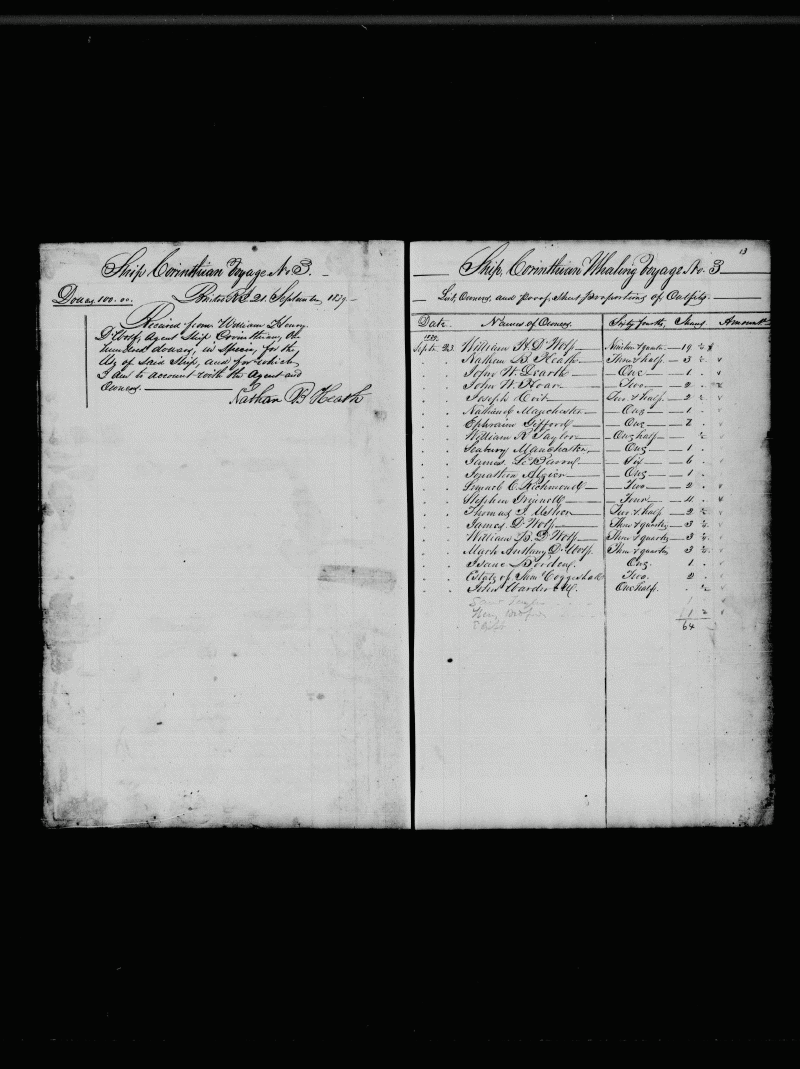 Ship Corinthian Voyage No 3.
Dollars 100.00. Bristol R.I. 21st September 1839
Received from William Henry
D'Wolf, Agent Ship Corinthian, One
hundred dollars, in Specie, for the
use of said Ship, and for which
I am to account with the Agent and
Owners
Nathan B Heath
13
Ship Corinthian Whaling Voyage No. 3
List, Owners, and proportions of Outfits.
Date. Names of Owners Sixty fourths, Amount
1839.
Septr. 23 William H. D'Wolf 19
Nathan B. Heath Three & half 3 ½
John W. Dearth One 1
John W. Hoar Two 2
Joseph Two & half 2 ½
Nathaniel Manchester One 1
Ephraim Gifford One
William R Taylor One half ½
Seabury Manchester One 1
James Six 6
Jonathan Alger One 1
Lemuel C. Richmond Two 2
Stephen Four
Thomas J. Usher Two & half 2 ½
James D'Wolf Three & quarter 3 ¼
William B. D'Wolf Three & quarter 3 ¼
Mark Anthony D'Wolf Three & quarter 3 ¼
Isaac Borden One 1
Estate of Coggeshall Two 2
John Wardwell One half ½
1
64